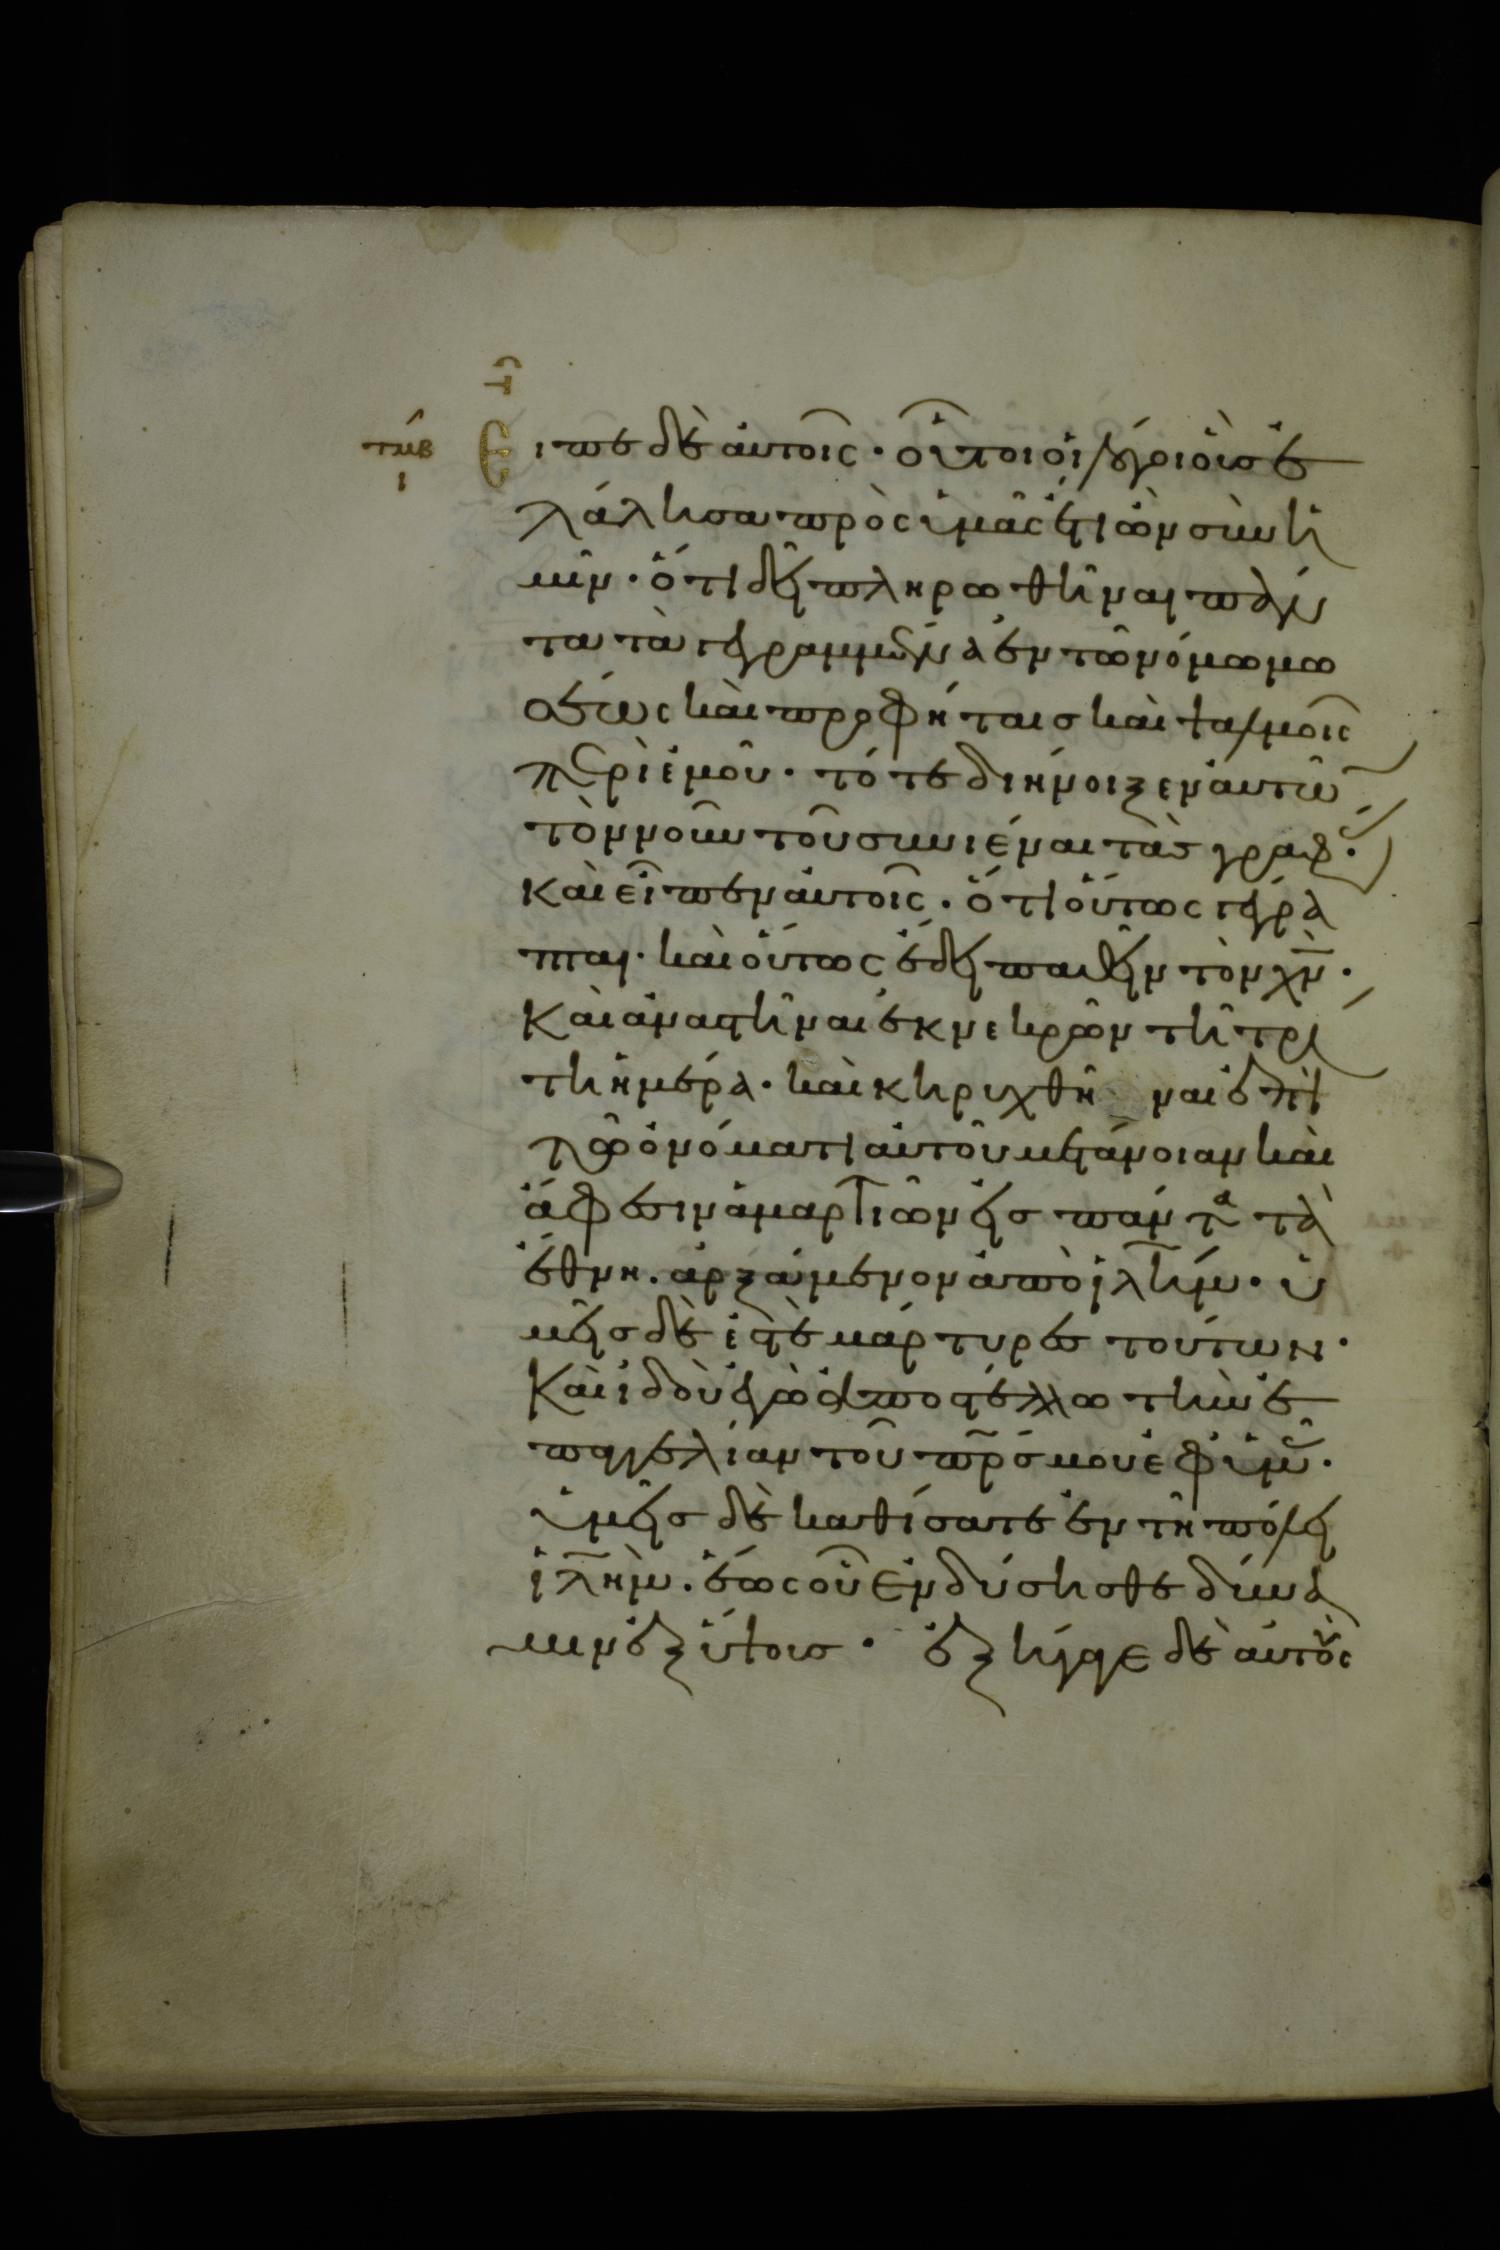 στ
τμβ
ι
Εἶπε δὲ αὐτοῖς· οὗτοι οἱ λόγοι οὓς ἐ
λάλησα πρὸς ὑμᾶς ἔτι ὢν σὺν ὑ
μῖν· ὅτι δεῖ πληρωθῆναι πάν
τα τὰ γεγραμμένα ἐν τῶ νόμω μω
σέως καὶ προφήταις καὶ ψαλμοῖς
περὶ ἐμοῦ· τότε διήνοιξεν αὐτῶν
τὸν νοῦν τοῦ συνιέναι τὰς γραφάς·
καὶ εἶπεν αὐτοῖς· ὅτι οὕτως γέγρα
πται· καὶ οὕτως ἔδει παθεῖν τὸν χν·
καὶ ἀναστῆναι ἐκ νεκρῶν τῆ τρί
τη ἡμέρα· καὶ κηρυχθῆναι ἐπὶ
τῶ ὀνόματι αὐτοῦ μετάνοιαν καὶ
ἄφεσιν ἁμαρτιῶν εἰς πάντα τὰ
ἔθνη· ἀρξάμενον ἀπὸ ἱλήμ· ὑ
μεῖς δὲ ἐστὲ μάρτυρες τούτων·
καὶ ἰδοὺ ἐγὼ ἀποστέλλω τὴν ἐ
παγγελίαν τοῦ πρς μου ἐφ ὑμᾶς·
ὑμεῖς δὲ καθίσατε ἐν τῆ πόλει
ἱλὴμ· ἕως οὗ ἐνδύσησθε δύνα
μιν ἐξ ὕψους· ἐξήγαγε δὲ αὐτοὺς